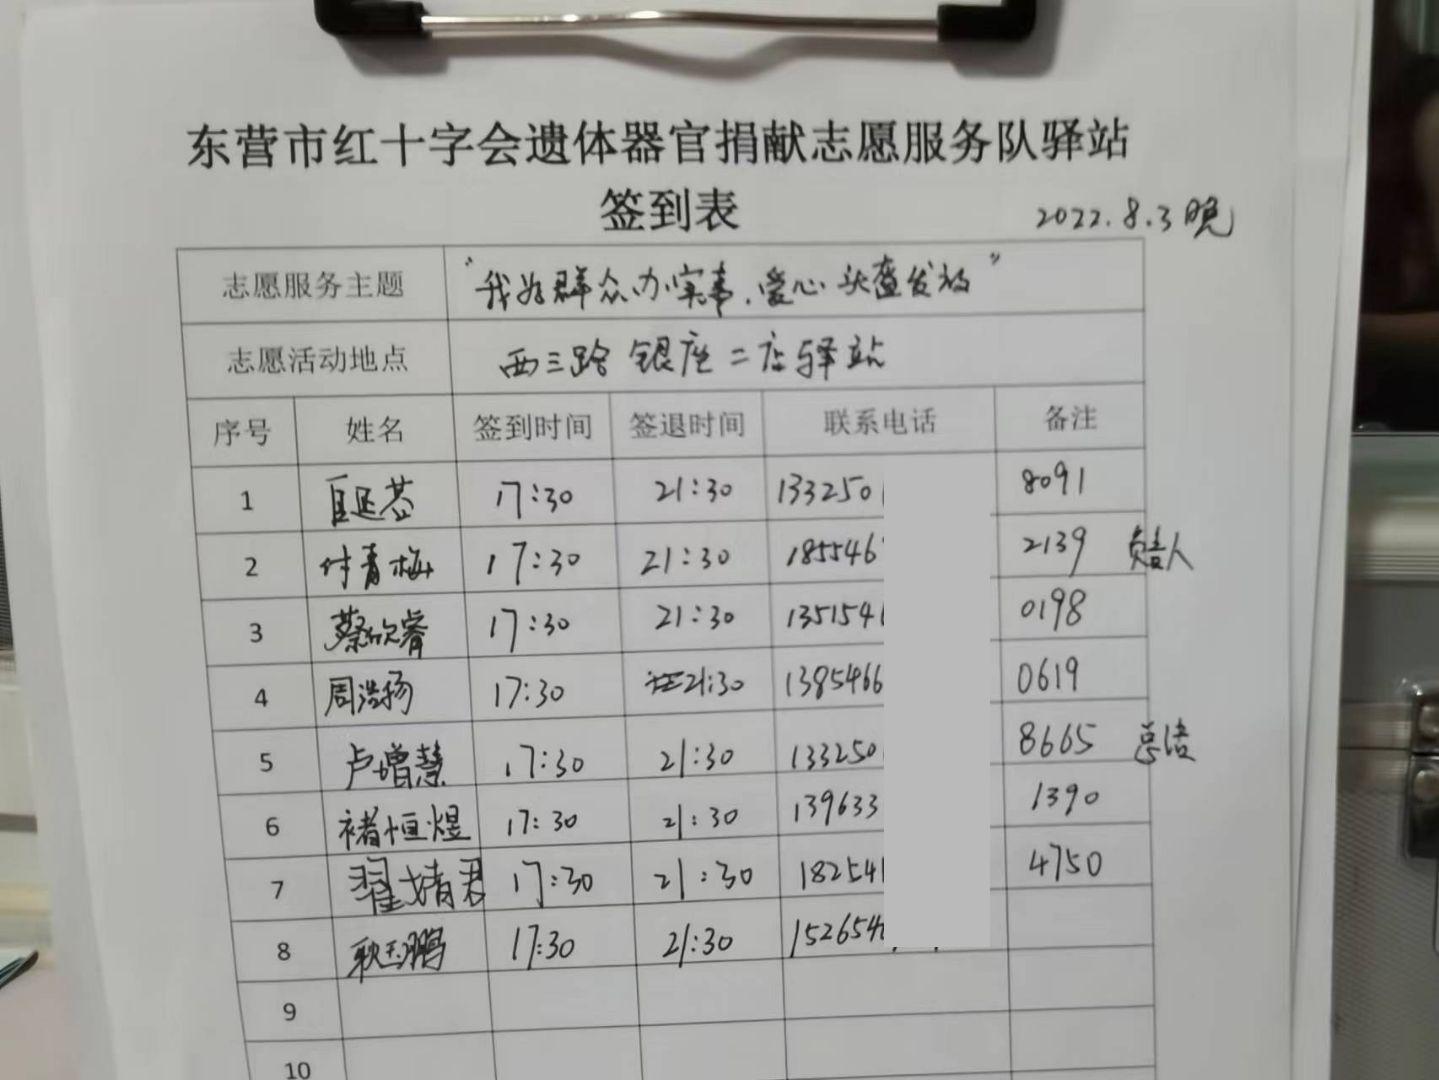 东营市红十字会遗体器官捐献志愿服务队驿站
签到表
2022.8.3晚
志愿服务主题 "我为群众办实事.爱心头盔发放"
志愿活动地点 西三路 银座二店驿站
序号 姓名 签到时间 签退时间 联系电话 备注
1 17:30 21:30 133250 8091
2 付青梅 17:30 21:30 185546 2139
3 蔡欣睿 17:30 21:30 1351541 0198
4 周浩扬 17:30 21:30 1385466 0619
5 卢增慧 17:30 21:30 133250 8665 总结
6 褚恒煜 17:30 21:30 139633 1390
7 翟婧君 17:30 21:30 182541 4750
8 耿玉鹏 17:30 21:30 152654
9
10